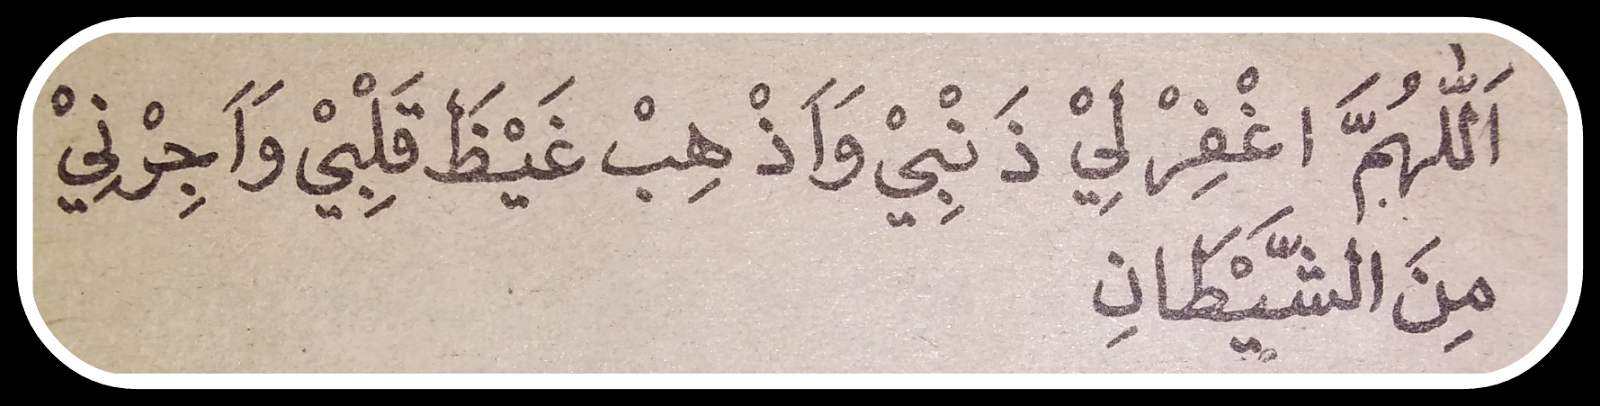 اَللّٰهُمَّ اغْفِرْ لِيْ ذَنْبِيْ وَاَذْهِبْ غَيْظَ قَلْبِيْ وَاَجِرْنِيْ
مِنَ الشَّيْطَانِ